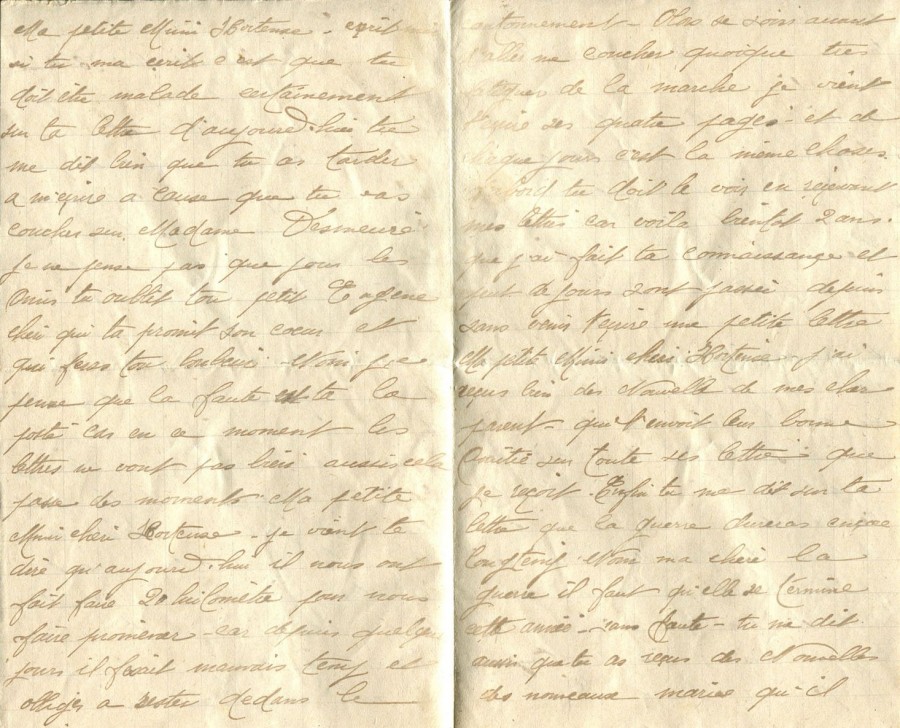 Ma petite Mimi Hortense - esprit mais
si tu ma ecrit c'est que tu
doit être malade certainement
sur ta lettre d'aujourd-hui tu
me dit bien que tu as tarder
a m'ecrire a cause que tu vas
coucher sur Madame Desmeure
je ne pense pas que pour les
Amis tu oublit ton petit Eugene
cheri qui ta promit son coeur et
qui feras ton bonheur - Non je
pense que la faute est ta la
poste car en ce moment les
lettres ne vont pas bien aussi cela
passe des moments. Ma petite
Mimi cheri Hortense - je vient te
dire qu'aujourd-hui il nous ont
fait faire 20 kilomètre pour nous
faire promener - car depuis quelque
jours il faisait mauvais temp et
obliger a rester dedans le
cantonnement - Alors se soir avant
d'aller me coucher quoique tres
fatiguer de la marche je vient
t'ecrire ses quatre pages - et de
chaque jours c'est la même choses.
d'abord tu doit le voir en recevant
mes lettres car voila bientot 2 ans.
que j'ai fait ta connaissance et
peut de jours sont passer depuis
sans venir t'ecrire une petite lettre
Ma petite Mimi cheri Hortense - j'ai
reçus bien des Nouvelle de mes cher
parent - qui t'envoit leur bonne
Amitié sur toute ses lettre que
je reçoit. Enfin tu me dit sur ta
lettre que la guerre dureras encore
longtemp. Non ma cheri la
guerre il faut qu'elle se termine
cette année - sans faute - tu me dit
aussi que tu as reçus des Nouvelles
des nouveaux maries qu'il